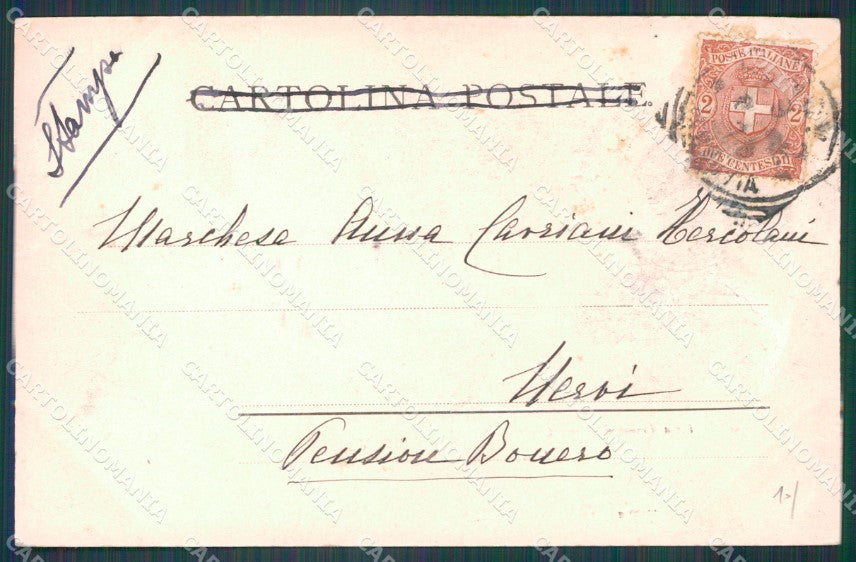 Stampe
CARTOLINA POSTALE.
POSTE ITALIANE
2 2
DUE CENTESIMI
Marchesa Anna Carriani Hercolani
Nervi
Pension Bonero